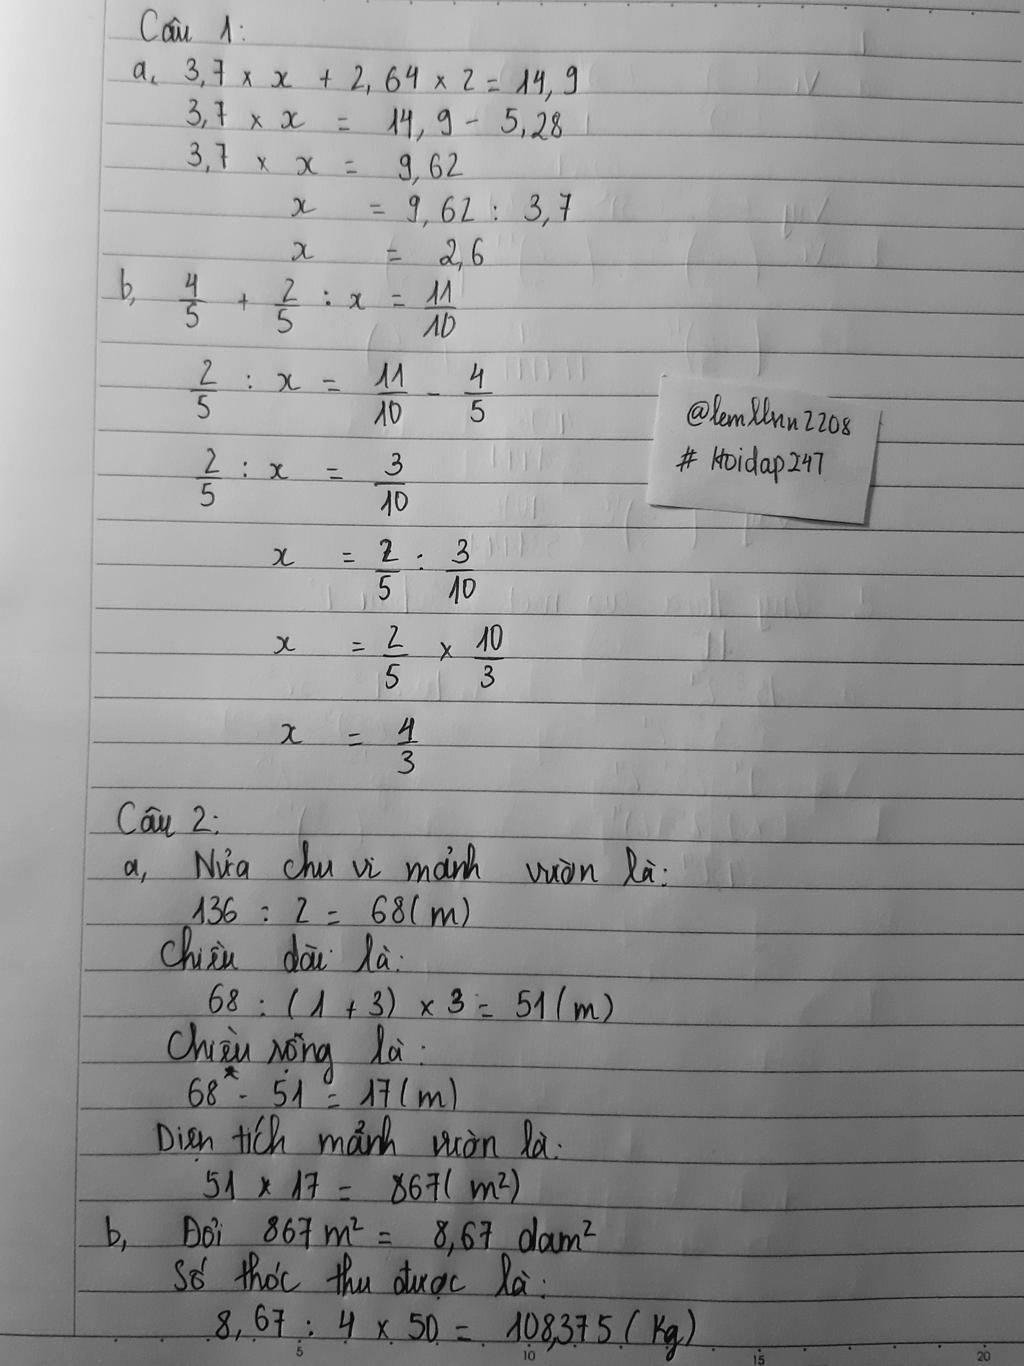 Câu 1:
a, 3,7 × x + 2,64 × 2 = 14,9
3,7 × x = 14,9 - 5,28
3,7 × x = 9,62
x = 9,62 : 3,7
x = 2,6
b, 4/5 + 2/5 : x = 11/10
2/5 : x = 11/10 - 4/5
2/5 : x = 3/10
x = 2/5 : 3/10
x = 2/5 × 10/3
x = 4/3
@lemllnn2208
# Hoidap247
Câu 2:
a, Nửa chu vi mảnh vườn là:
136 : 2 = 68(m)
Chiều dài là:
68 : (1 + 3) × 3 = 51(m)
Chiều rộng là:
68 - 51 = 17(m)
Diện tích mảnh vườn là:
51 × 17 = 867(m²)
b, Đổi 867m² = 8,67 dam²
Số thóc thu được là:
8,67 : 4 × 50 = 108,375 (Kg)
5 10 15 20